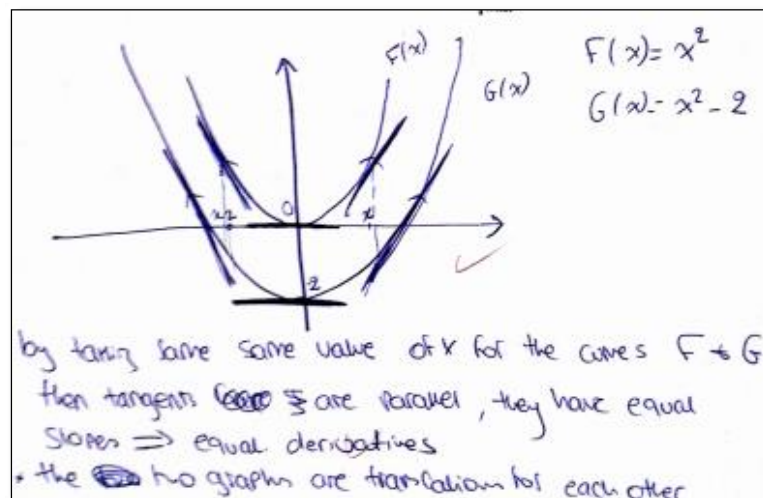 F(x)
G(x)
F(x) = x²
G(x) = x² - 2
0
x2
x
-2
by taking same same value of x for the curves F & G
then tangents are parallel, they have equal
slopes ⇒ equal derivatives
• the two graphs are translation for each other